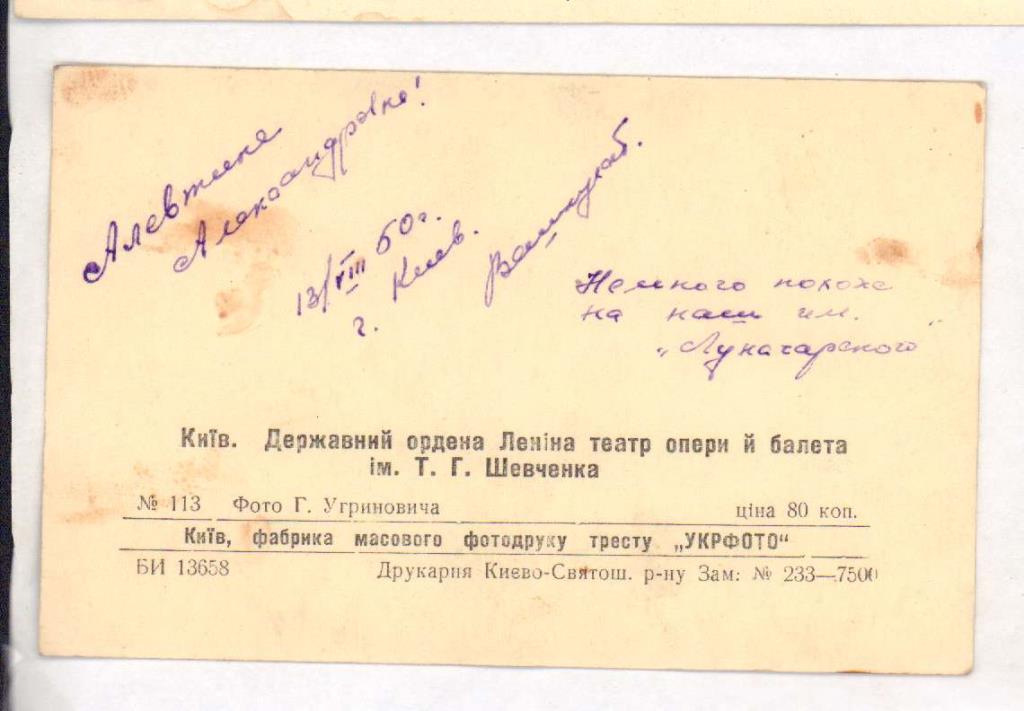 Алевтине
Александровне!
13/VIII 60 г.
г. Киев.
Немного похоже
на наш им.
„Луначарского"
Київ. Державний ордена Леніна театр опери й балета
ім. Т. Г. Шевченка
№ 113 Фото Г. Угриновича ціна 80 коп.
Київ, фабрика масового фотодруку тресту „УКРФОТО"
БИ 13658 Друкарня Києво-Святош. р-ну Зам: № 233—7500